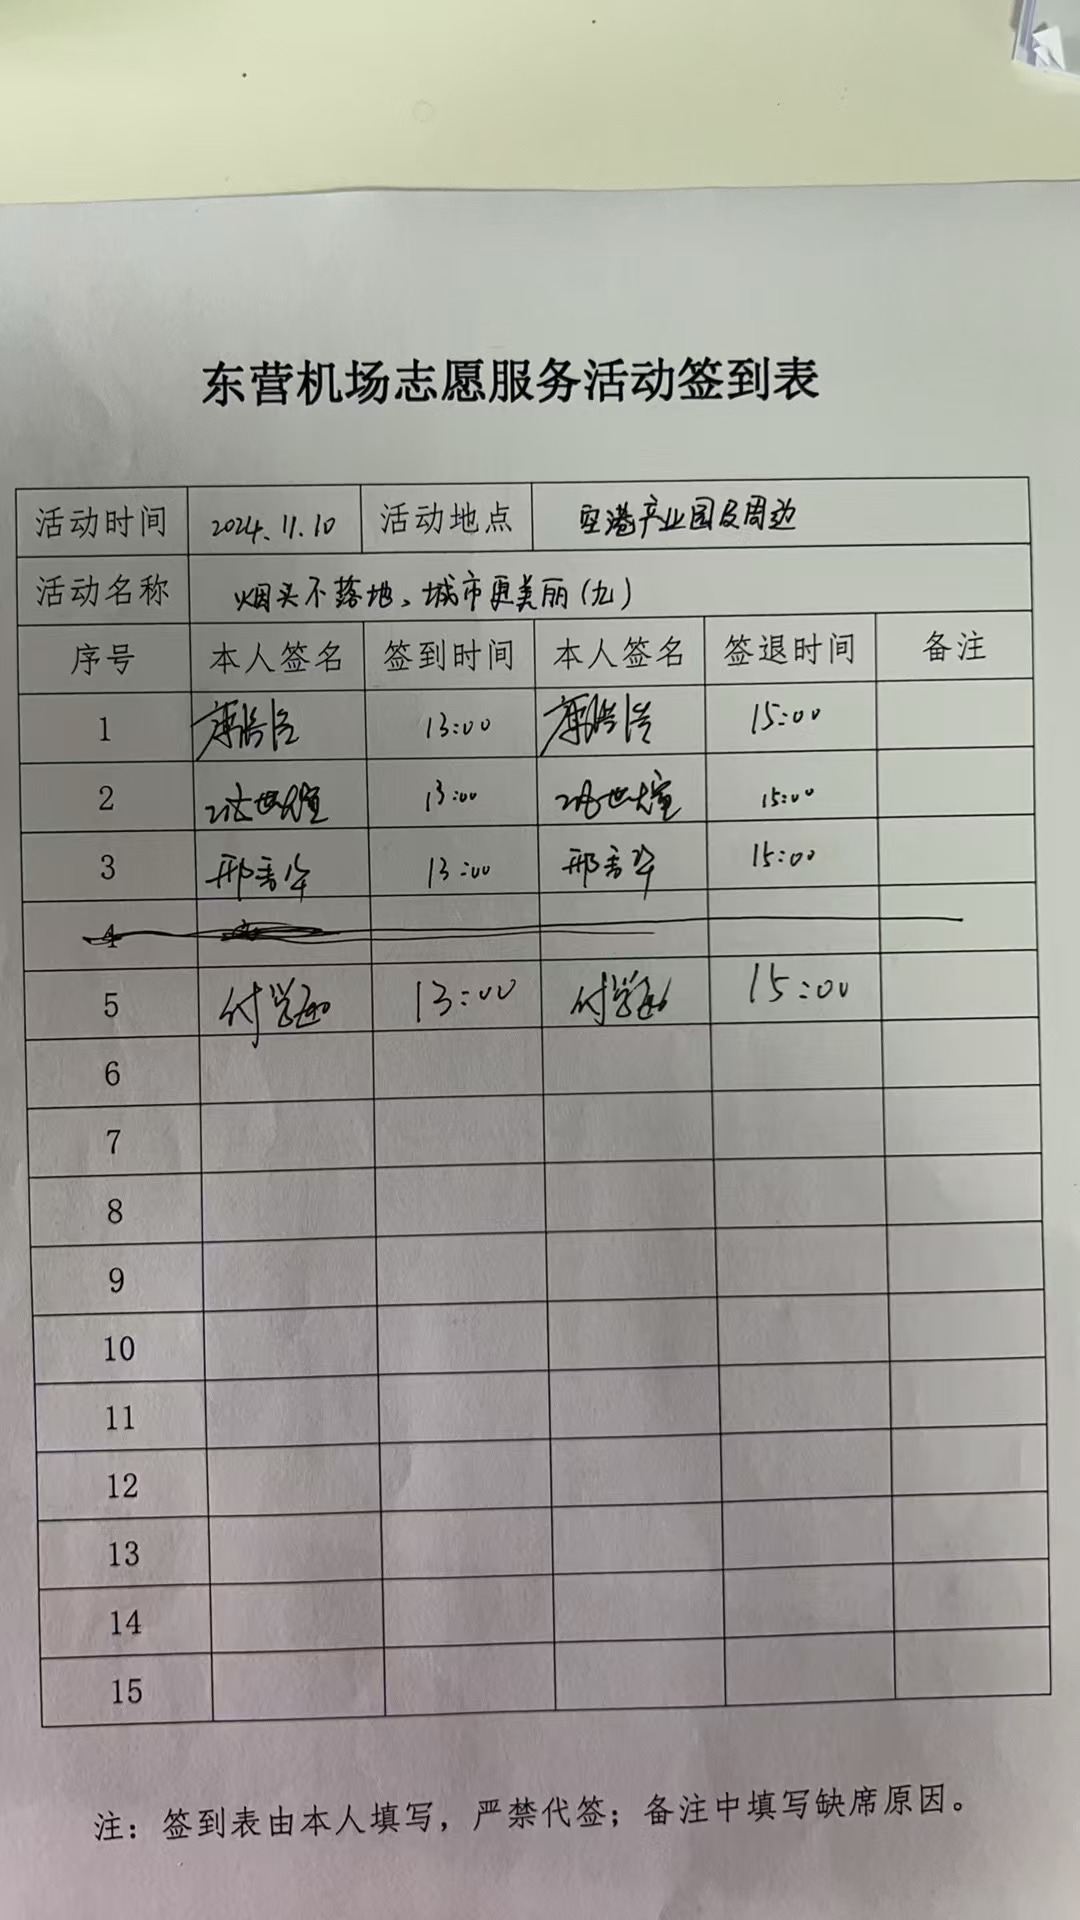 东营机场志愿服务活动签到表
活动时间 2024.11.10 活动地点 空港产业园及周边
活动名称 烟头不落地、城市更美丽(九)
序号 本人签名 签到时间 本人签名 签退时间 备注
1 13:00 15:00
2 13:00 15:00
3 13:00 15:00
4
5 13:00 15:00
6
7
8
9
10
11
12
13
14
15
注：签到表由本人填写，严禁代签；备注中填写缺席原因。